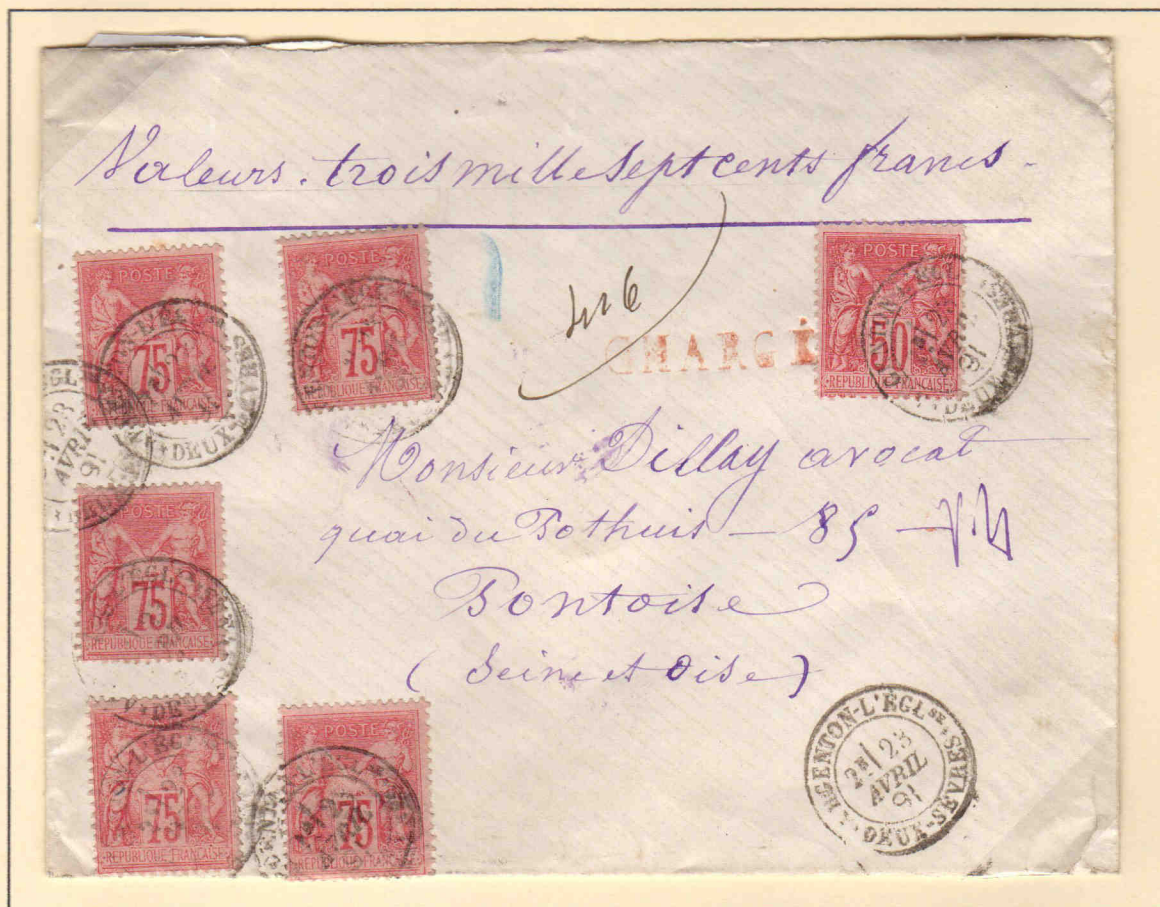 Valeurs. trois mille sept cents francs.
POSTE
75
REPUBLIQUE FRANÇAISE
POSTE
75
REPUBLIQUE FRANÇAISE
POSTE
50
REPUBLIQUE FRANÇAISE
CHARGÉ
Monsieur Dillay avocat
quai du Pothuis — 85 —
Pontoise
(Seine et Oise)
POSTE
75
REPUBLIQUE FRANÇAISE
POSTE
75
REPUBLIQUE FRANÇAISE
POSTE
75
REPUBLIQUE FRANÇAISE
23
AVRIL
91
DEUX-
ARGENTON-L'ÉGLSE
2E/ 23
AVRIL
91
DEUX-SÈVRES